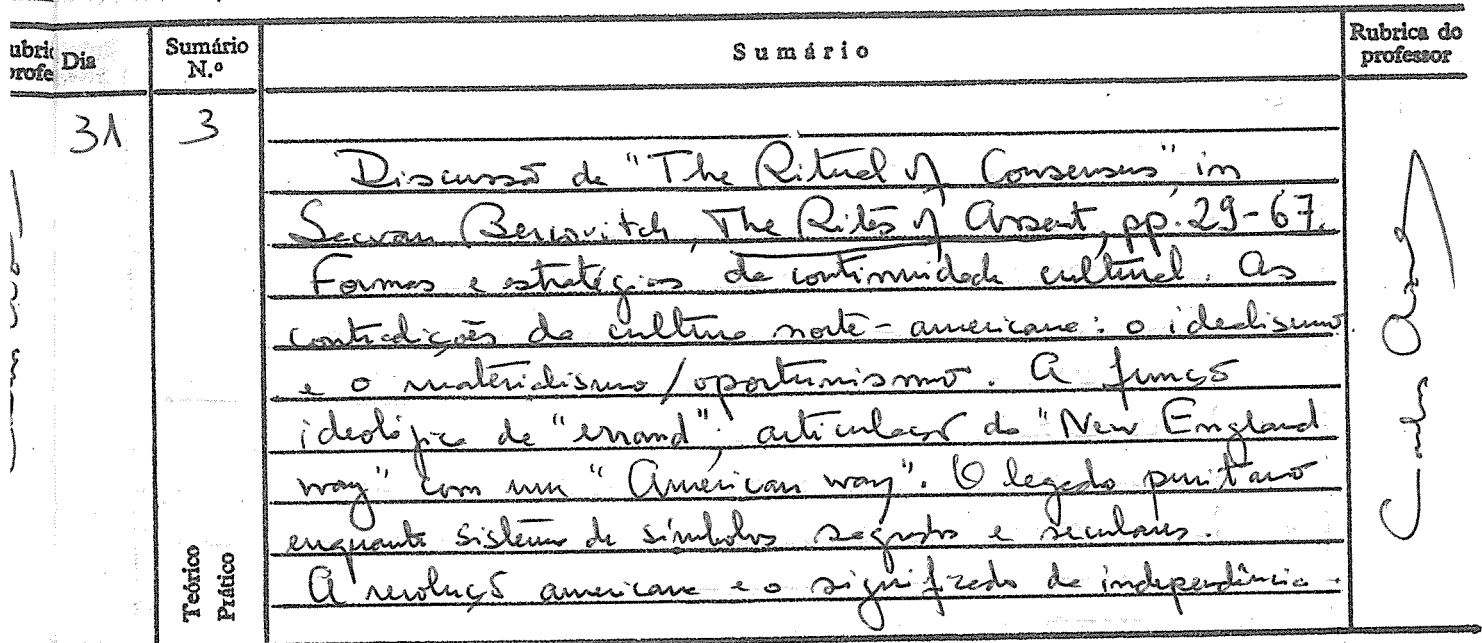 ubric
profe
Dia
Sumário
N.º
Sumário
Rubrica do
professor
31
3
Discussão de "The Ritual of Consensus" in
Sacvan Bercovitch, The Rites of Assent, pp. 29-67.
Formas e estratégias da continuidade cultural. As
contradições da cultura norte-americana: o idealismo
e o materialismo/oportunismo. A função
ideológica de "errand": articulação do "New England
way" com um "American way". O legado puritano
enquanto sistema de símbolos sagrados e seculares.
A revolução americana e o significado da independência.
Teórico
Prático